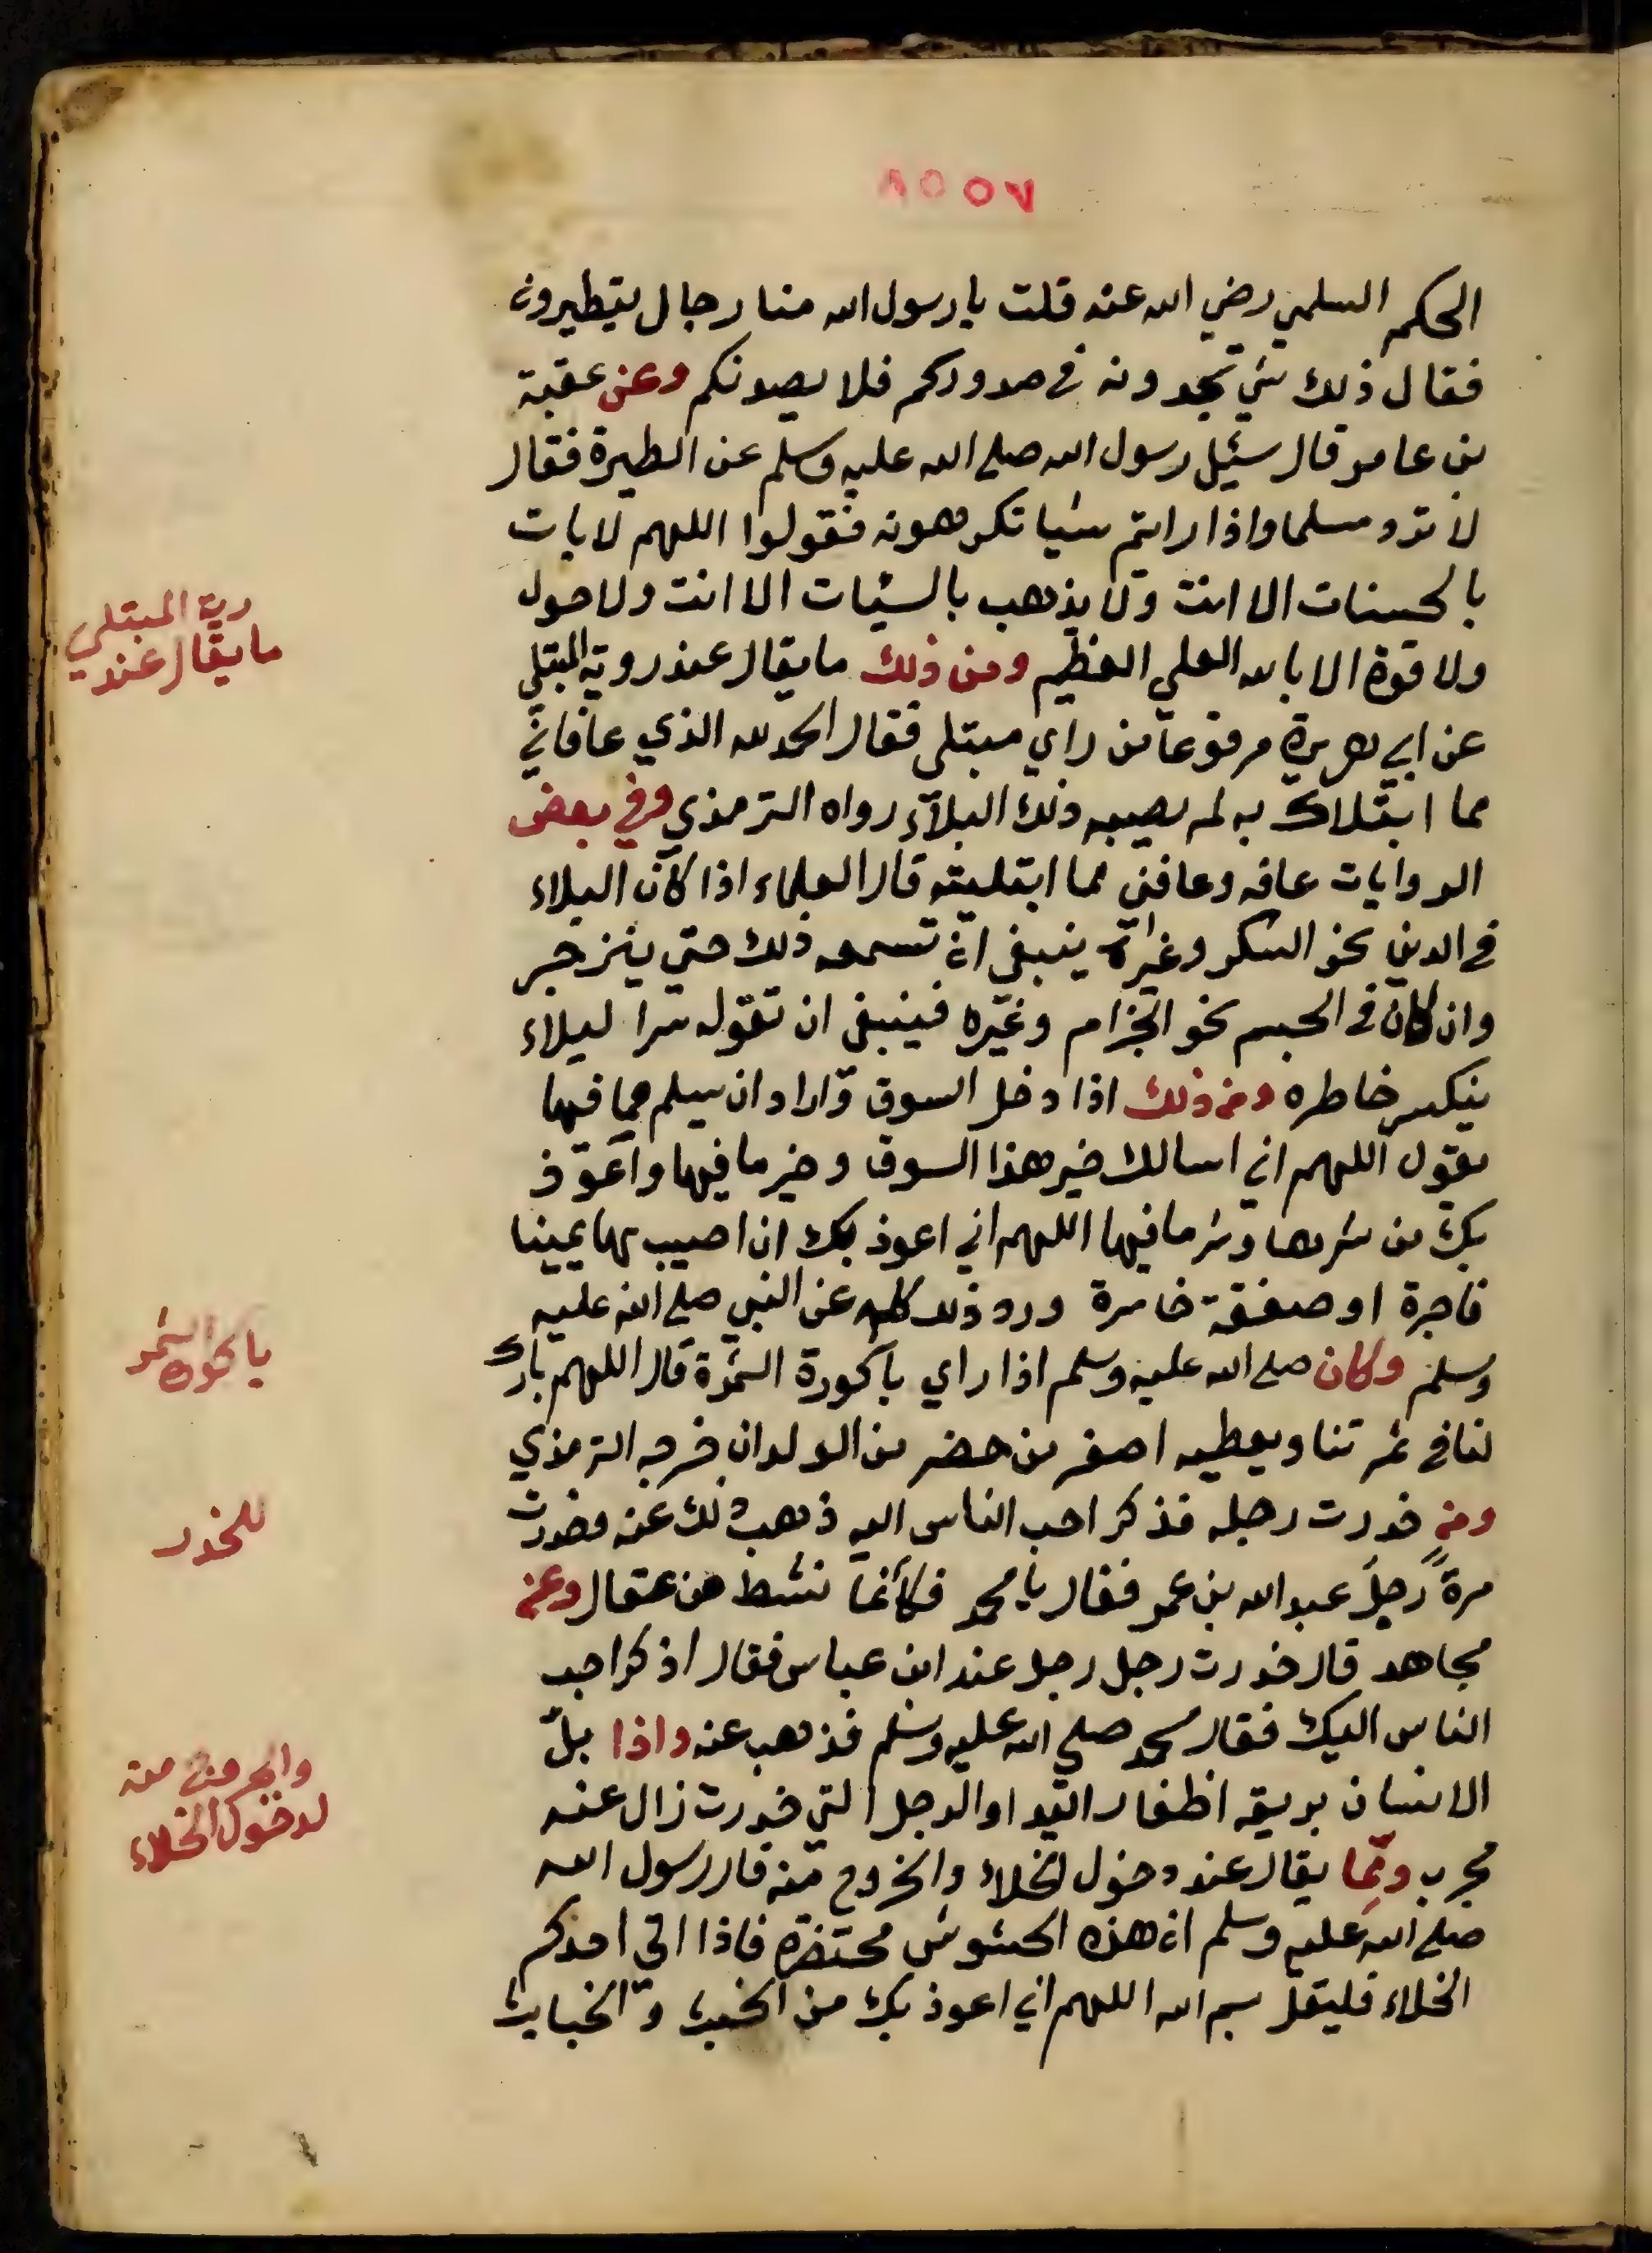 ٨٥٥٧
الحكم السلمي رضي الله عنه قلت يا رسول الله منا رجال يتطيرون
فقال ذلك شي تجدونه في صدوركم فلا يصدنكم وعن عقبة
بن عامر قال سئيل رسول الله صلى الله عليه وسلم عن الطيرة فقال
لا ترد مسلما واذا رايتم شيا تكرهونه فقولوا اللهم لا يات
بالحسنات الا انت ولا يذهب بالسئيات الا انت ولا حول
ولا قوة الا بالله العلي العظيم ومن ذلك ما يقال عند روية المبتلي
رية المبتلي
ما يقال عند
عن ابي هريرة مرفوعا من راي مبتلى فقال الحمد لله الذي عافاني
مما ابتلاك به لم يصيبه ذلك البلآء رواه الترمذي وفي بعض
الروايات عافه وعافني مما ابتليته قال العلماء اذا كان البلاء
في الدين نحو السكر وغيره ينبغي ان تسمعه ذلك حتي ينزجر
وان كان في الجسم نحو الجزام وغيره فينبغي ان تقوله سرا ليلاء
ينكسر خاطره ومن ذلك اذا دخل السوق واراد ان يسلم مما فيها
يقول اللهم اني اسالك خير هذا السوق وخير ما فيها واعوذ
بك من شرها وشر ما فيها اللهم اني اعوذ بك ان اصيب بها يمينا
فاجرة او صفقة خاسرة ورد ذلك كله عن النبي صلى الله عليه
وسلم وكان صلى الله عليه وسلم اذا راي باكورة الثمرة قال اللهم بارك
لنا في ثمرتنا ويعطيه اصغر من حضر من الولدان خرجه الترمذي
ومن خدرت رجله فذكر احب الناس اليه ذهب ذلك عنه وخدرت
للخدر
مرةً رجلُ عبد الله بن عمر فقال يا محمد فكأنما نشط من عقال وعن
مجاهد قال خدرت رجل رجل عند ابن عباس فقال اذكر احب
الناس اليك فقال محمد صلى الله عليه وسلم فذهب عنه واذا بلّ
الانسان بريقه اظفار اليد او الرجل التي خدرت زال عنه
لدخول الخلاء
مجرب ومّما يقال عند دخول الخلاء والخروج منه قال رسول الله
صلى الله عليه وسلم ان هذه الحشوش محتضره فاذا اتى احدكم
الخلاء فليقل بسم الله اللهم اني اعوذ بك من الخبث والخبايث